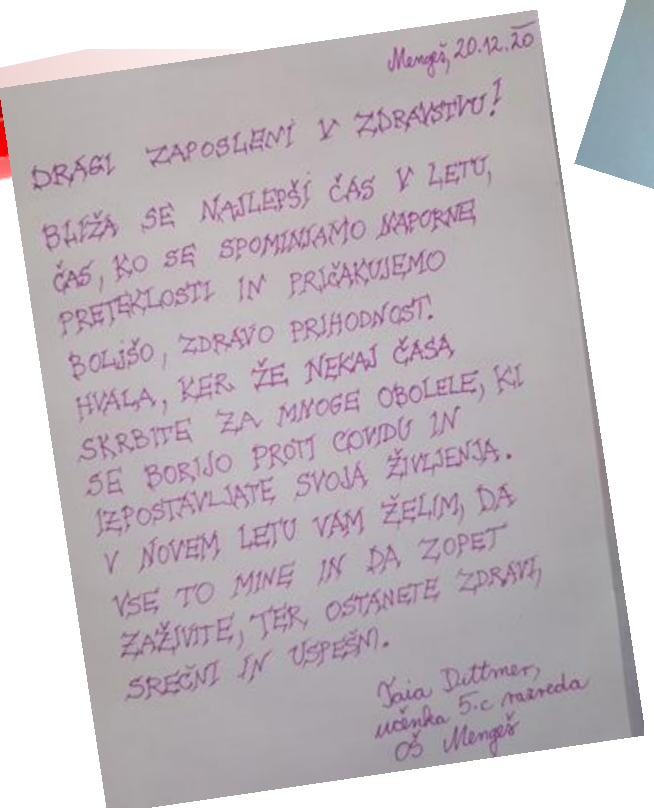 Mengeš, 20.12.20
DRAGI ZAPOSLENI V ZDRAVSTVU!
BLIŽA SE NAJLEPŠI ČAS V LETU,
ČAS, KO SE SPOMINJAMO NAPORNE
PRETEKLOSTI IN PRIČAKUJEMO
BOLJŠO, ZDRAVO PRIHODNOST.
HVALA, KER ŽE NEKAJ ČASA
SKRBITE ZA MNOGE OBOLELE, KI
SE BORIJO PROTI COVIDU IN
IZPOSTAVLJATE SVOJA ŽIVLJENJA.
V NOVEM LETU VAM ŽELIM, DA
VSE TO MINE IN DA ZOPET
ZAŽIVITE, TER OSTANETE ZDRAVI,
SREČNI IN USPEŠNI.
Taia Dittmer,
učenka 5.c razreda
OŠ Mengeš